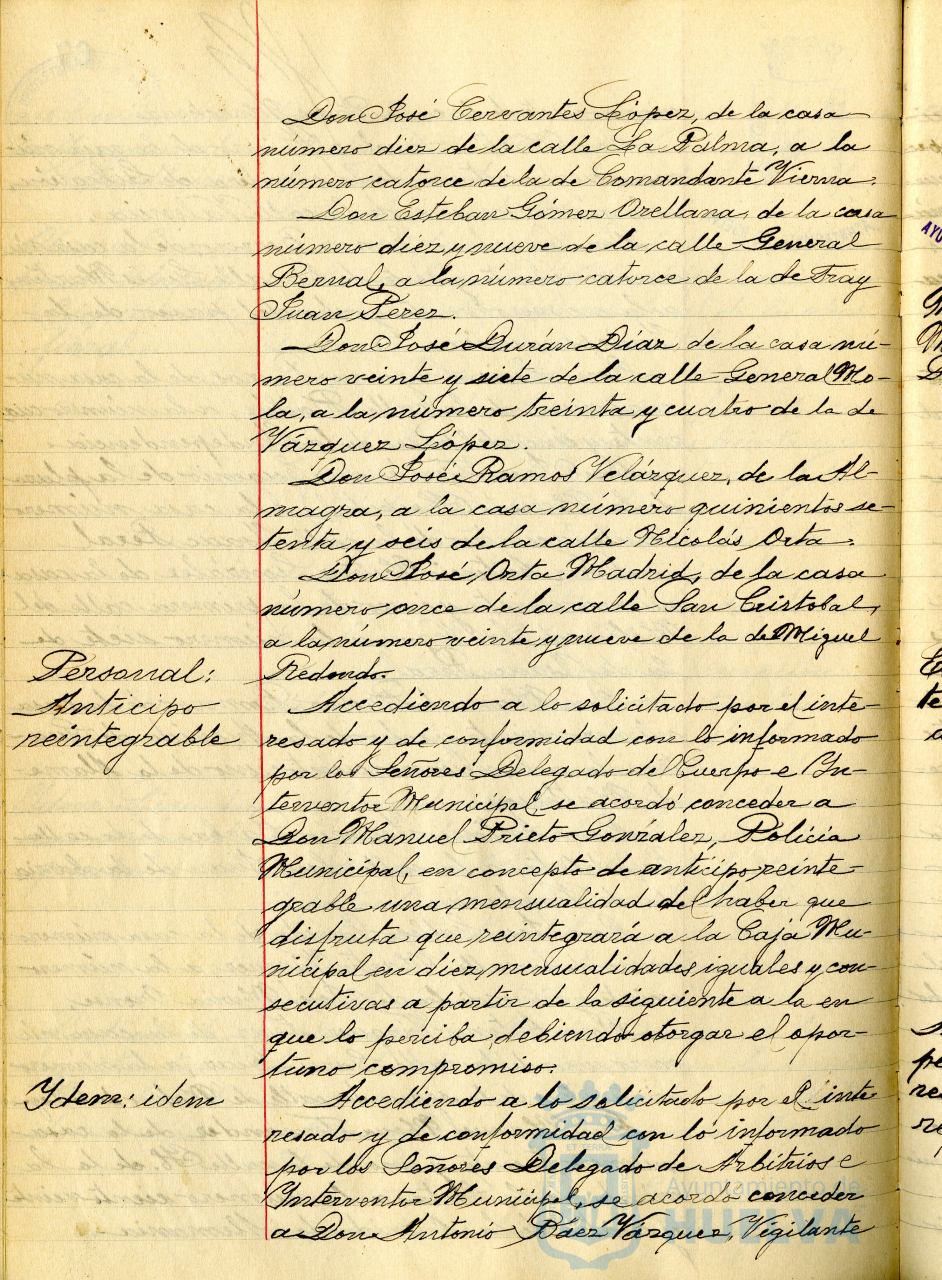 Don José Cervantes López, de la casa
número diez de la calle La Palma, a la
número catorce de la de Comandante Vierna.
Don Esteban Gómez Orellana, de la casa
número diez y nueve de la calle General
Bernal, a la número catorce de la de Fray
Juan Perez.
Don José Durán Díaz de la casa nú-
mero veinte y siete de la calle General Mo-
la, a la número treinta y cuatro de la de
Vázquez López.
Don José Ramos Velázquez, de la Al-
magra, a la casa número quinientos se-
tenta y seis de la calle Nicolás Orta.
Don José, Orta Madrid, de la casa
número, once de la calle San Cristobal,
a la número veinte y nueve de la de Miguel
Redondo.
Personal:
Anticipo
reintegrable
Accediendo a lo solicitado por el inte-
resado y de conformidad con lo informado
por los Señores Delegado del Cuerpo e In-
terventor Municipal, se acordó conceder a
Don Manuel Prieto González, Policía
Municipal, en concepto de anticipo reinte-
grable una mensualidad del haber que
disfruta que reintegrará a la Caja Mu-
nicipal en diez mensualidades iguales y con-
secutivas a partir de la siguiente a la en
que lo perciba, debiendo otorgar el opor-
tuno compromiso.
Ydem: idem
Accediendo a lo solicitado por el inte-
resado y de conformidad con lo informado
por los Señores Delegado de Arbitrios e
Interventor Municipal, se acordó conceder
a Don Antonio Báez Vázquez, Vigilante
Ayuntamiento de
HUELVA